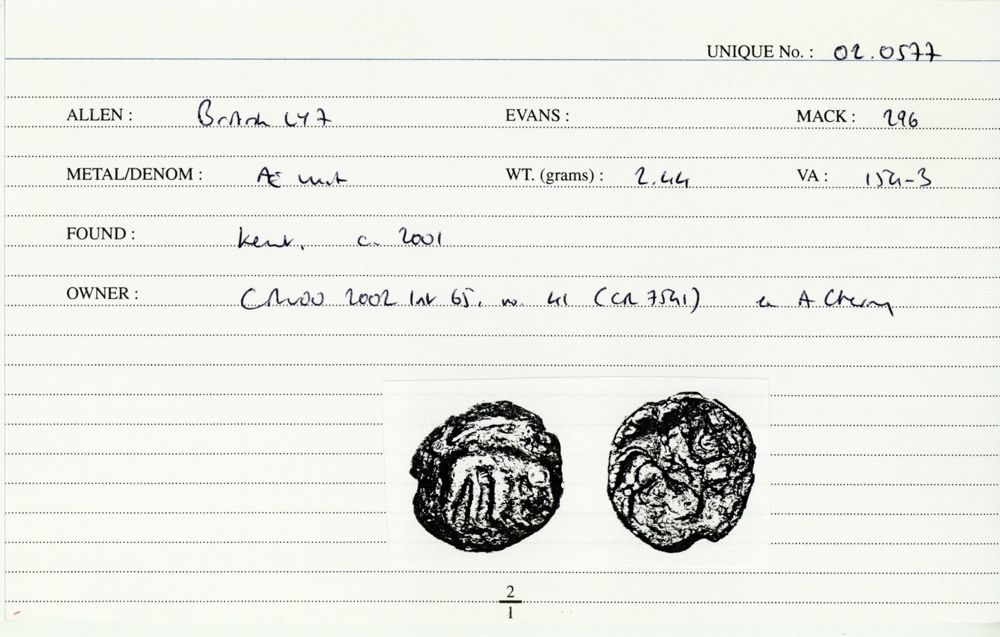 UNIQUE No. : 02.0577
ALLEN : British LY7 EVANS : MACK : 296
METAL/DENOM : Æ unit WT. (grams) : 2.44 VA : 154-3
FOUND : Kent, c. 2001
OWNER : 2002 65, no. 41 (CR 7541) ex A
2
1